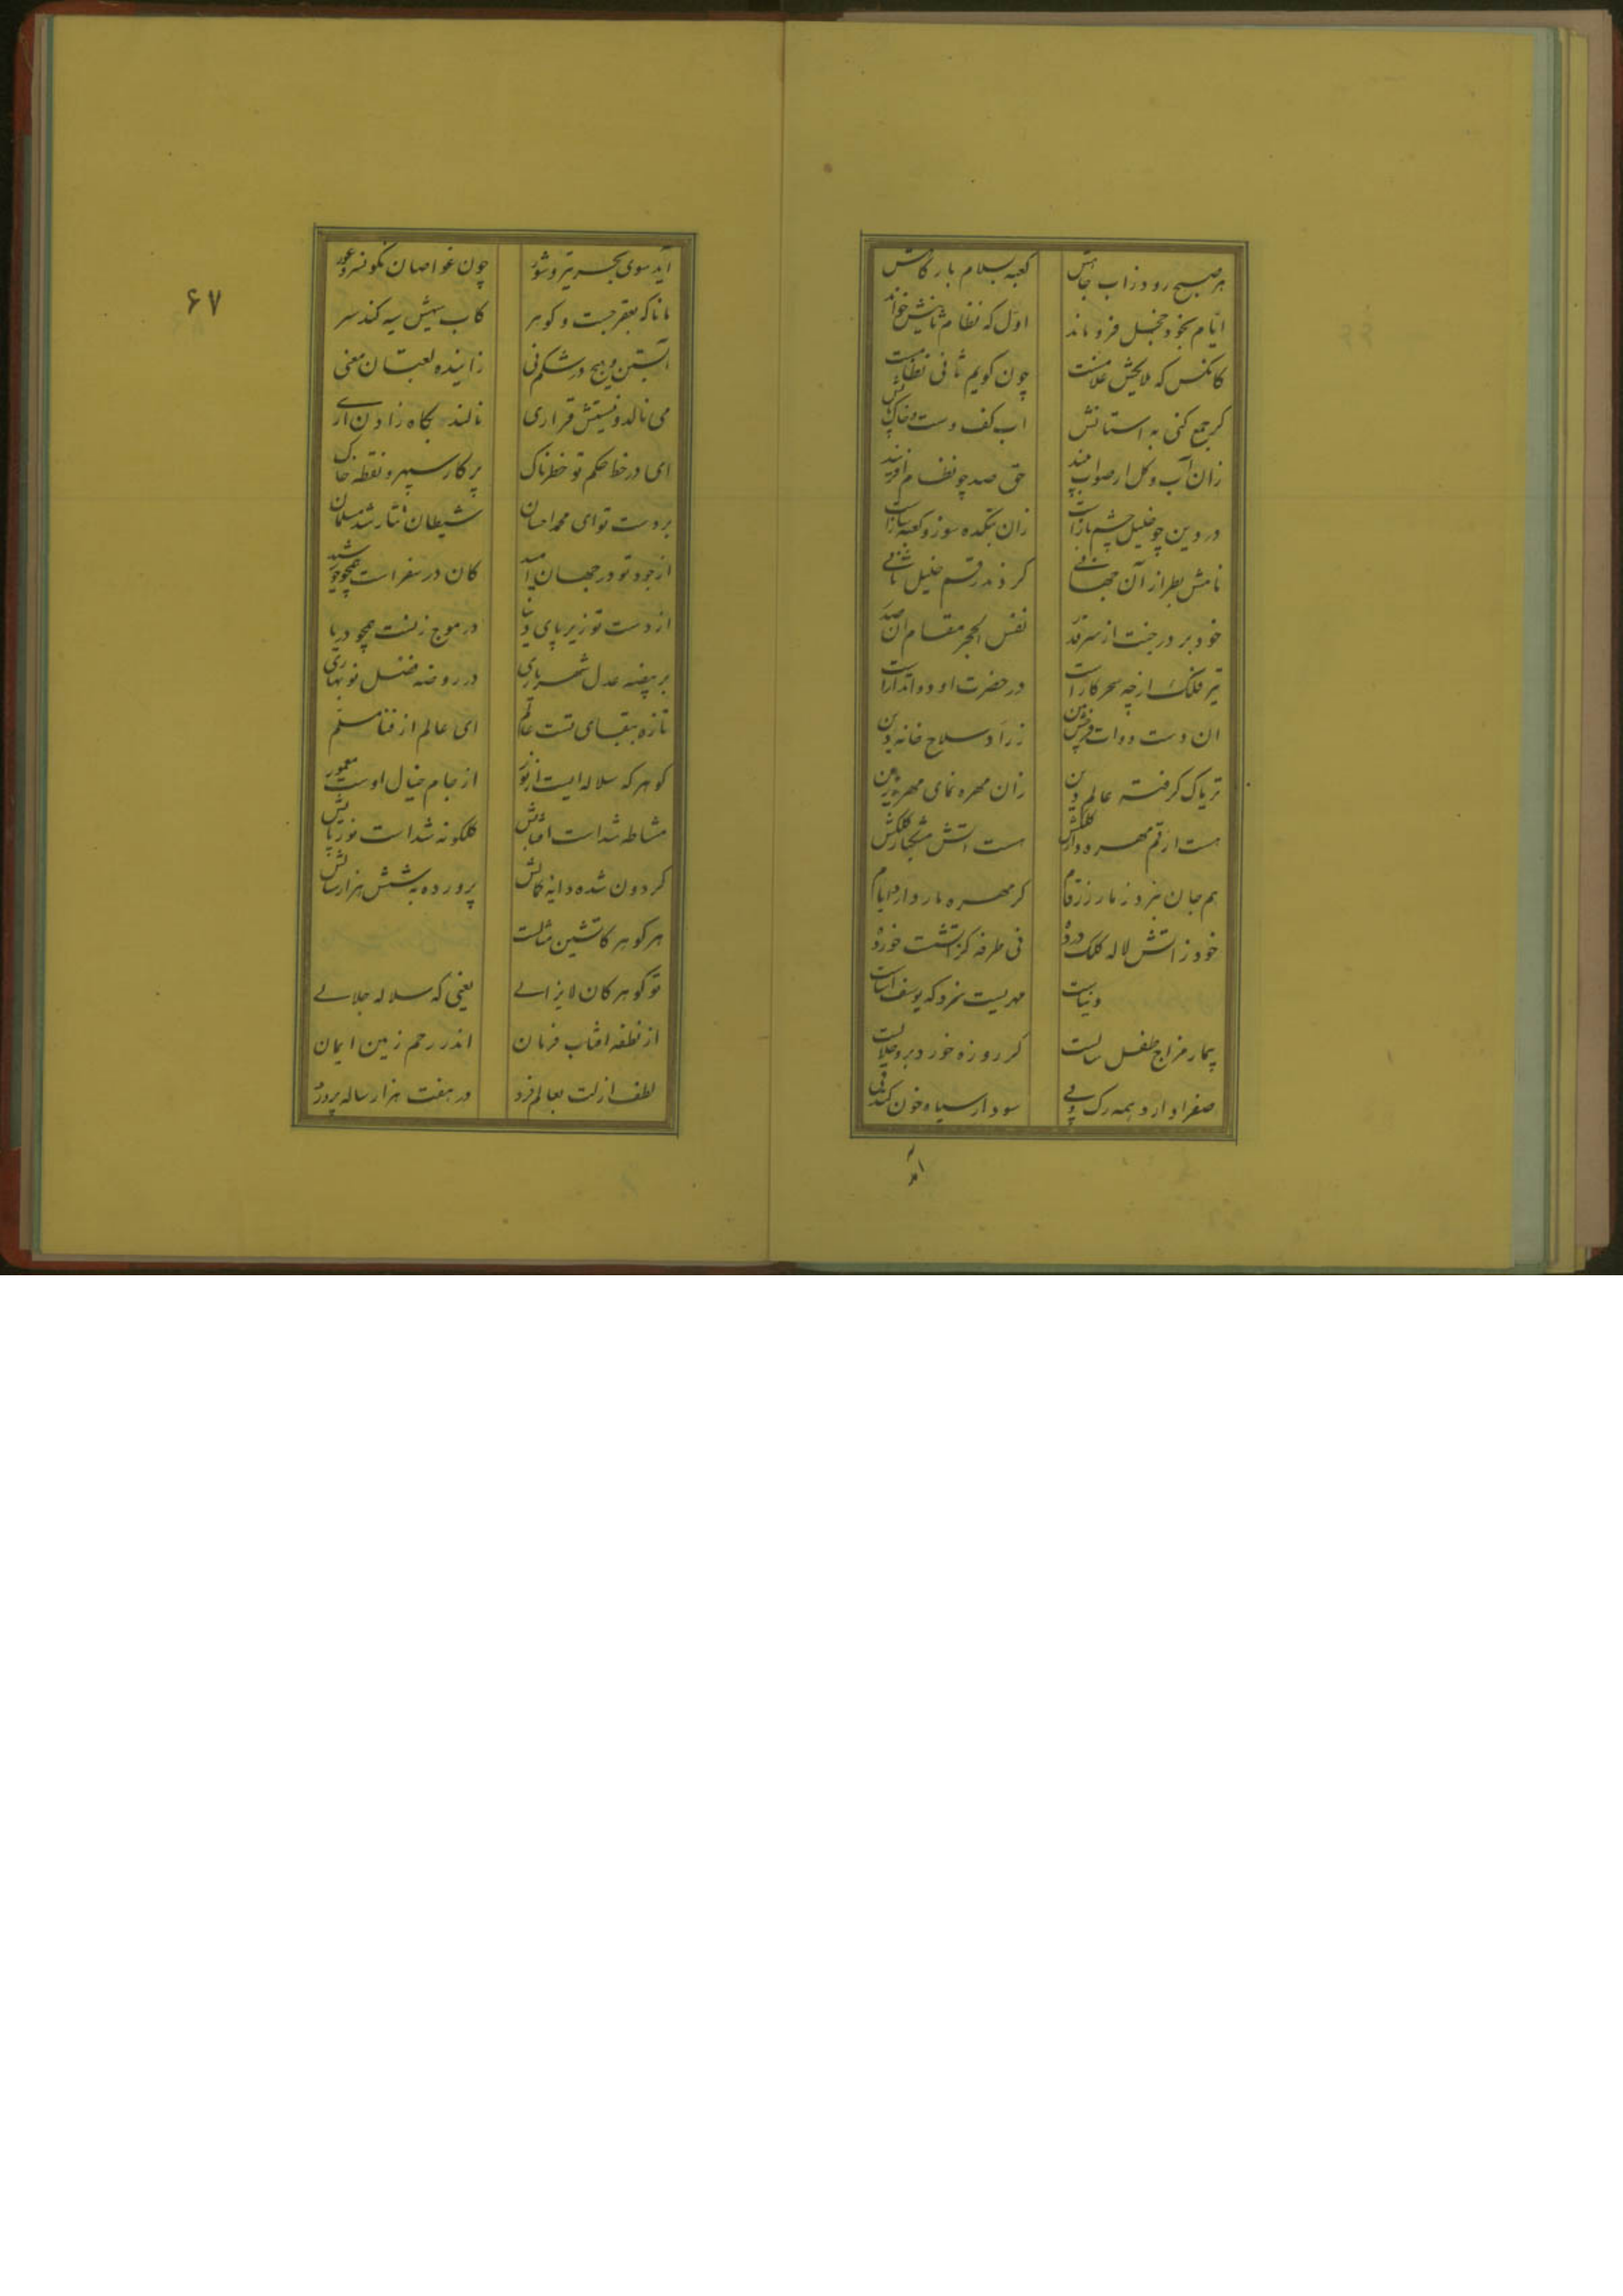 هر صبح رود ز اب جاهش
کعبه بسلام بارگاهش
ایّام بخود خجل فرو ماند
اوّل که نظام ثانیش خواند
کانکس که علامتست
چون کویم ثانی نظامست
کر جمع کنی به استانش
اب کف دست و خاک پایش
زان آب و کل ار صواب بیند
حق صد چو نظام افریند
در دین چو خلیل چشم بازاست
زان بتکده سوز و کعبه سازاست
نامش بطراز آن جهانی
کردند رقم خلیل ثانی
خود بر در جنت از سر قدر
نفس الحجر مقام ان صدر
تیر فلک ارچه سحر کاراست
در حضرت او دواتداراست
ان دست و دوات
زرّاد سلاح خانه دین
تریاک کرفته عالم دین
زان مهره نمای مهره
هست از رقم مهره دار کلکش
هست اتش کلکش
هم جان نبرد ز مار ارقام
کر مهره مار دارد ایام
خود ز اتش لاله کلک
نی طرفه کز اتشت خورد
دنیات
مهدیست نزد که یوسف اساست
بیمار مزاج طفل سالست
کر روزه خورد برو حلالست
صفرا دارد همه رک و پی
سودا سیاه خون کند قی
آید سوی بحر تیره و شور
چون غواصان نکونسر و عور
تا ناکه بقعر جست و کوهر
کاب سیهش سیه کند سر
آبستن و هیچ در شکم نی
زاینده لعبتان معنی
می نالد و نیستش قراری
نالند بکاه زادن آری
ای در خط حکم تو خطرناک
پرکار سپهر و نقطه خاک
بر دست تو ای محمد احسان
شیطان نثار شد مسلمان
از جود تو در جهان امید
کان در سفر است همچو خورشید
از دست تو زیر پای دنیا
در موج زنست همچو دریا
بر بیضه عدل شهریاری
در روضه فضل نوبهاری
تازه ببقای تست عالم
ای عالم از فنا مسلّم
کوهر که سلاله ایست از نور
از جام خیال اوست معمور
مشاطه شد است افتابش
کلکونه شد است نور
کردون شده دایه کمالش
پرورده به شش هزار سالش
هر کوهر کاتشین مثالست
تو کوهر کان لایزالی
یعنی که سلاله جلالی
از نطفه افتاب فرمان
اندر رحم زمین ایمان
لطف ازلت بعالم فرد
در هفت هزار ساله پرورد
۶۷